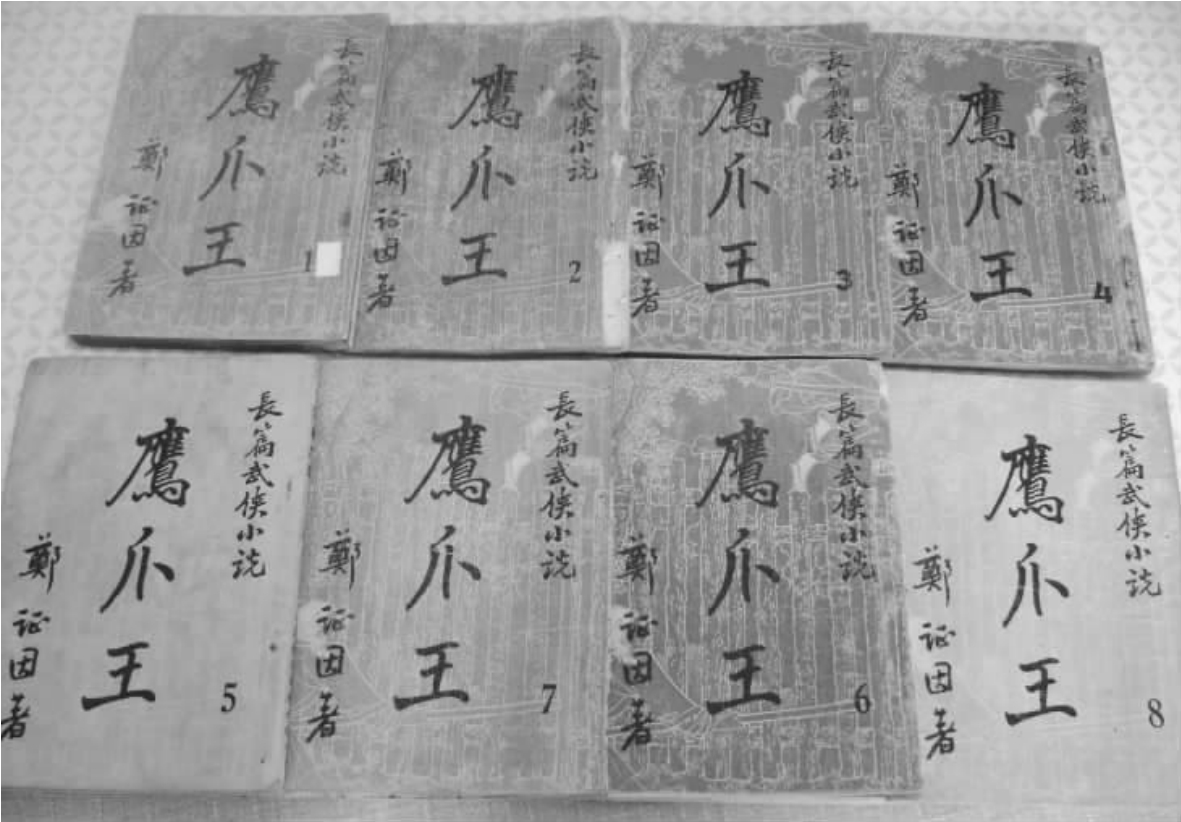 長篇武俠小说
鷹爪王
鄭证因著
1
長篇武俠小说
鷹爪王
鄭证因著
2
長篇武俠小说
鷹爪王
鄭证因著
3
長篇武俠小说
鷹爪王
鄭证因著
4
長篇武俠小说
鷹爪王
鄭证因著
5
長篇武俠小说
鷹爪王
鄭证因著
7
長篇武俠小说
鷹爪王
鄭证因著
6
長篇武俠小说
鷹爪王
鄭证因著
8